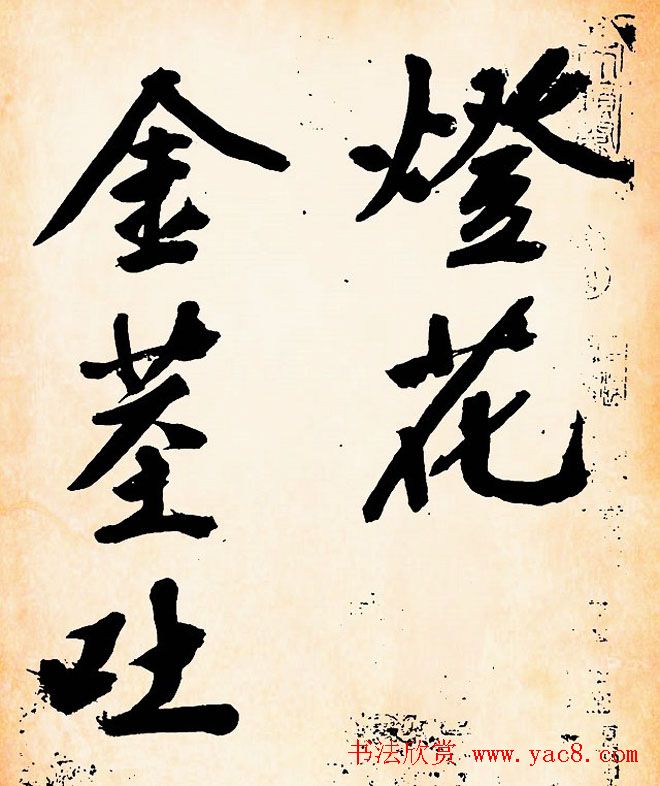 燈花
金莖吐
书法欣赏 www.yac8.com